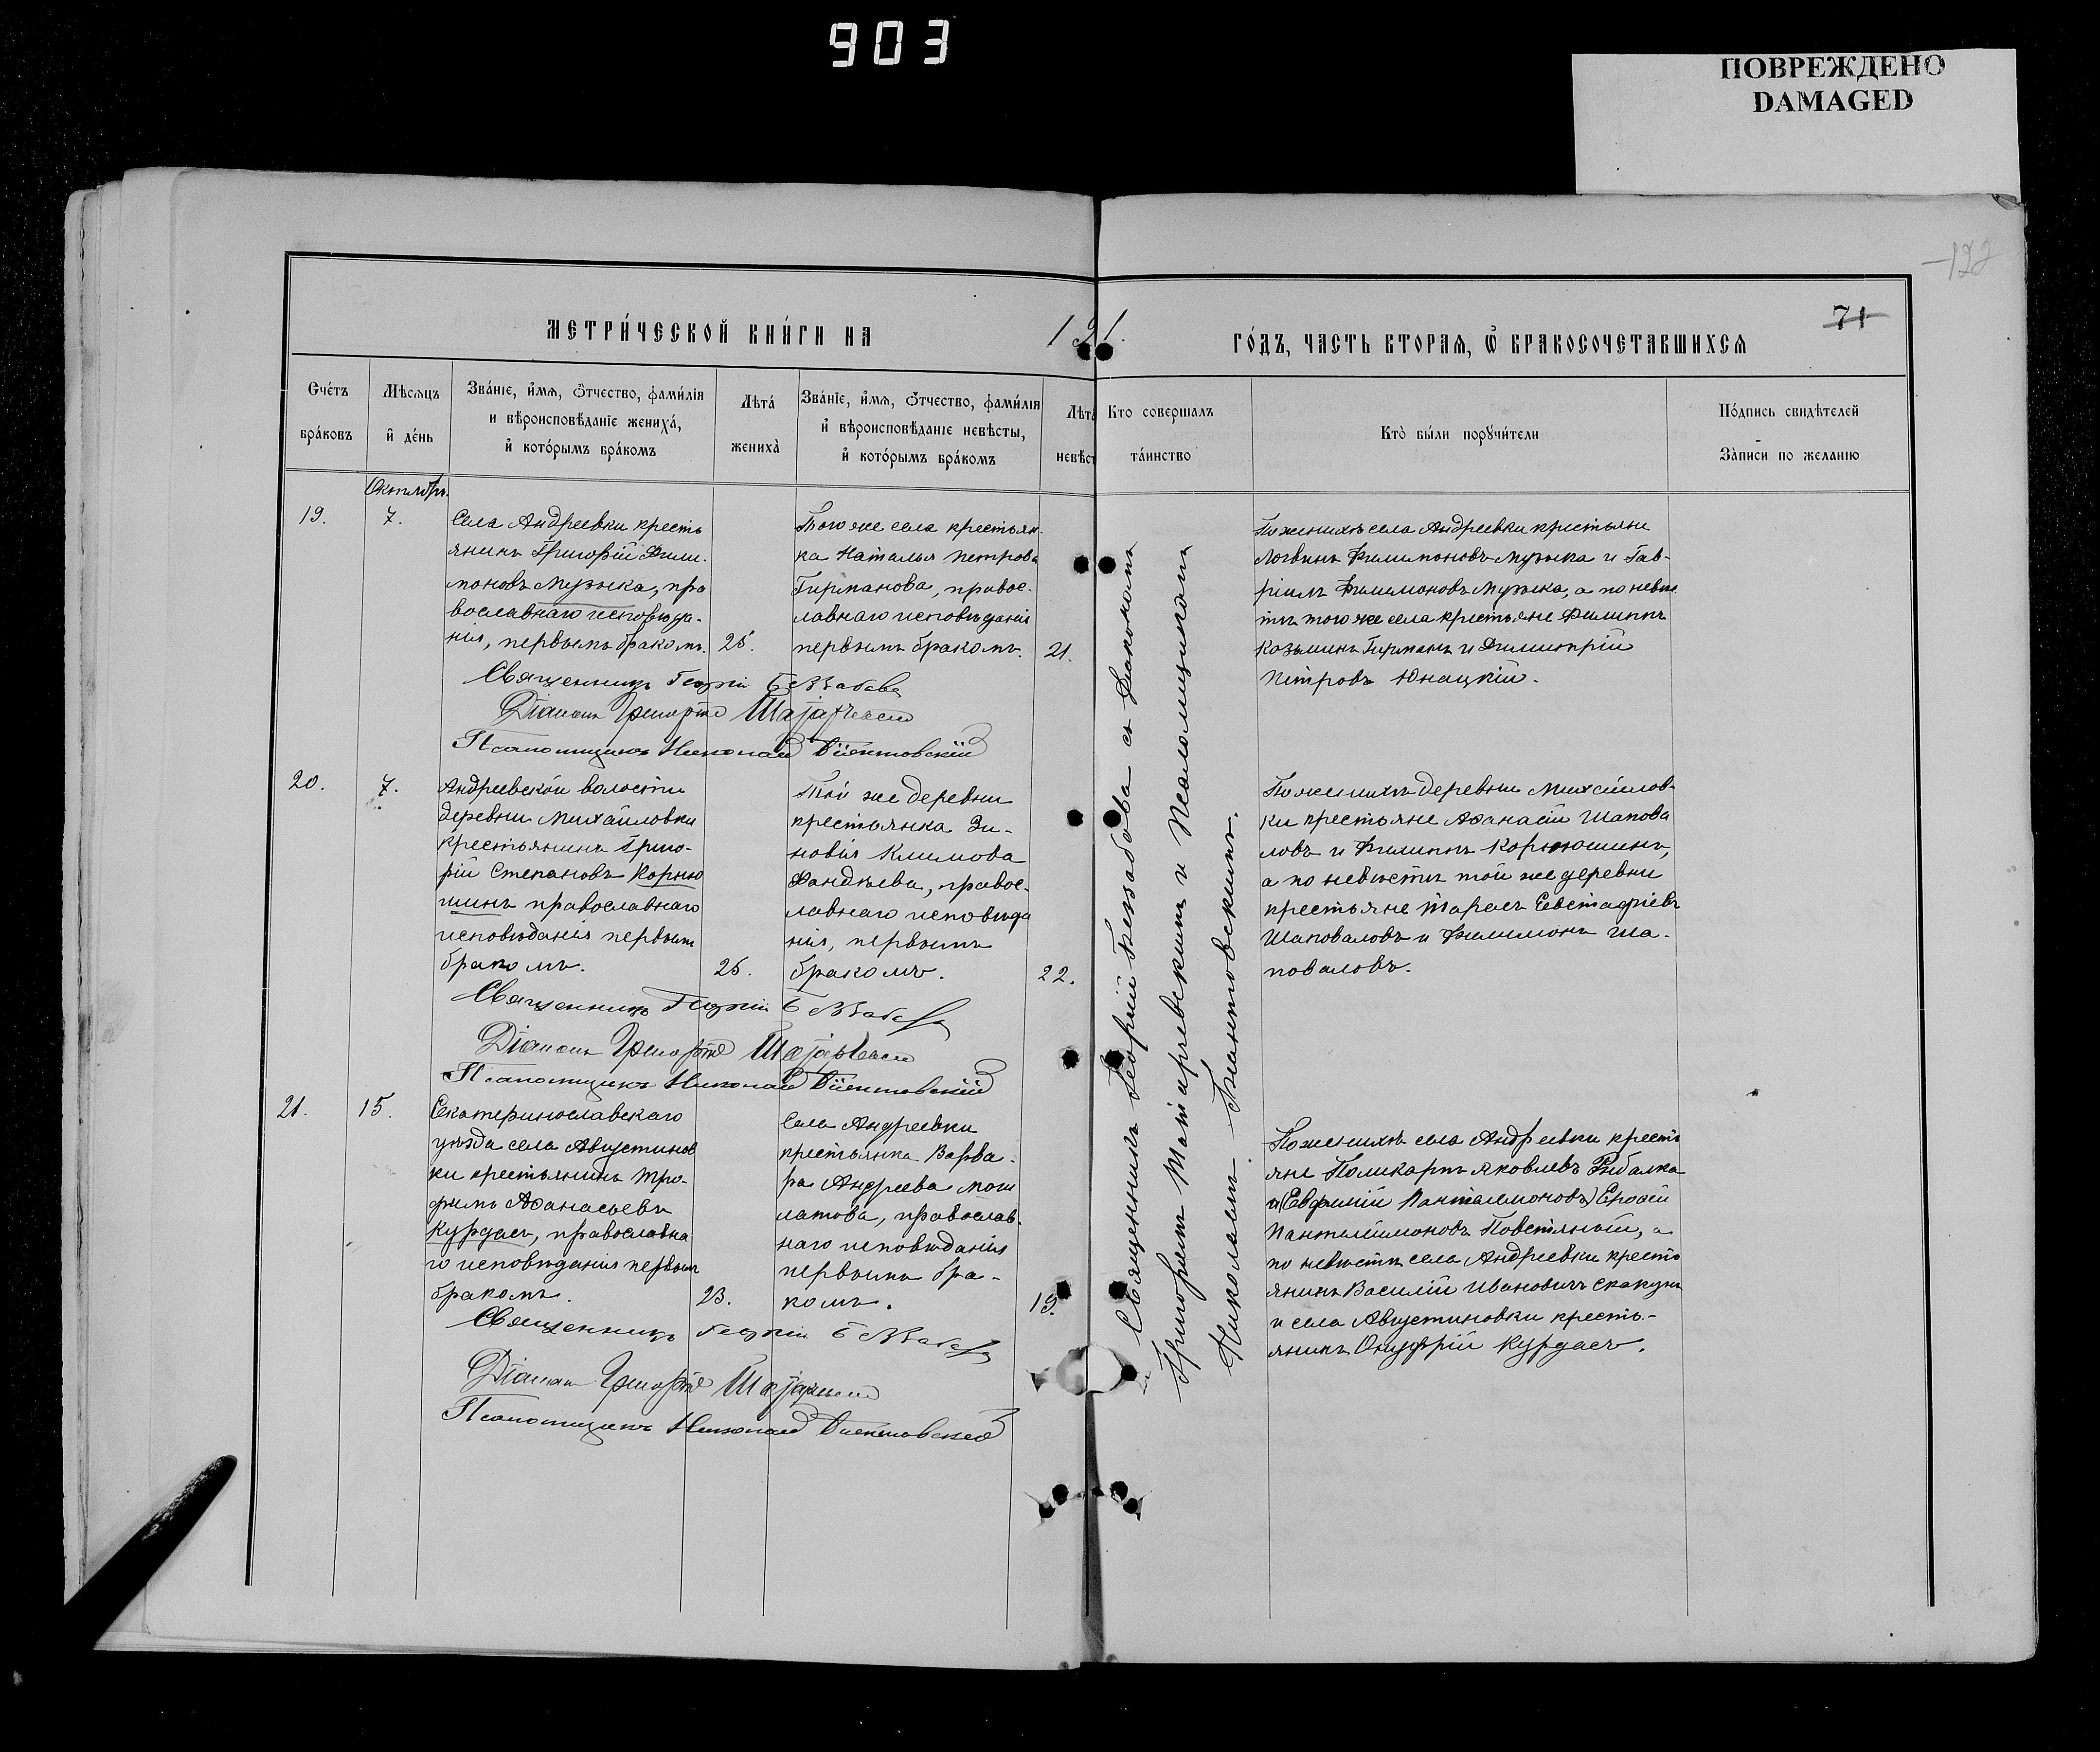 903
ПОВРЕЖДЕНО
DAMAGED
122
71
МЕТРИ́ЧЕСКОЙ КНИ́ГИ НА 1 91. ГО́ДЪ, ЧАСТЬ ВТОРАЯ, Ѿ БРАКОСОЧЕТАВШИХСЯ
Счётъ браковъ
Мѣсяцъ и день
Званіе, имя, отчество, фамилія
и вѣроисповѣданіе жениха,
и которымъ бракомъ
Лѣта жениха
Званіе, имя, отчество, фамилія
и вѣроисповѣданіе невѣсты,
и которымъ бракомъ
Лѣта невѣст
Кто совершалъ таинство
Кто были поручители
Подпись свидѣтелей
Записи по желанію
Октябрь
19.
7.
Села Андреевки кресть
янинъ Григорій Фили-
моновъ Музыка, пра
вославнаго исповѣда-
нія, первымъ бракомъ.
25.
Того же села крестьян-
ка Наталья Петрова
Гирманова, правос-
лавнаго исповѣданія
первымъ бракомъ.
21.
По женихѣ села Андреевки крестьяне
Логвинъ Филимоновъ Музыка и Гав-
ріилъ Филимоновъ Музыка, а по невѣс
тѣ того же села крестьяне Филиппъ
Козьминъ Гирманъ и Димитрій
Петровъ Юнацкій.
Священникъ Георгій Беззабава
Діаконъ Григорій
Псаломщикъ Николай
20.
7.
Андреевской волости
деревни Михайловки
крестьянинъ Григо-
рій Степановъ Корню
шинъ православнаго
исповѣданія первымъ
бракомъ.
26.
Той же деревни
крестьянка Зи-
новія Климова
Фандѣева, правос-
лавнаго исповѣда
нія, первымъ
бракомъ.
22.
По женихѣ деревни Михайлов-
ки крестьяне Аѳанасій Шапова
ловъ и Филиппъ Корнюшинъ,
а по невѣстѣ той же деревни
крестьяне Тарасъ Евстафіевъ
Шаповаловъ и Филимонъ Ша-
поваловъ.
Священникъ Георгій Беззабава
Діаконъ Григорій
Псаломщикъ Николай
21.
15.
Екатеринославскаго
уѣзда села Августинов
ки крестьянинъ Тро-
фимъ Аѳанасьевъ
Курдасъ, православна
го исповѣданія первымъ
бракомъ.
23.
Села Андреевки
крестьянка Варва-
ра Андреева
латова, православ-
наго исповѣданія
первымъ бра-
комъ.
19.
По женихѣ села Андреевки кресть
яне Поликарпъ Яковлевъ Рыбалка
и (Евфимій Пантелимоновъ)
Пантелимоновъ Повстяный, а
по невѣстѣ села Андреевки кресть
янинъ Василій Ивановичъ Скакунъ
и села Августиновки кресть-
янинъ Онуфрій Курдасъ.
Священникъ Георгій Беззабава
Діаконъ Григорій
Псаломщикъ Николай
Священникъ Георгій Беззабава съ Діакономъ
Григоріемъ и Псаломщикомъ
Николаемъ